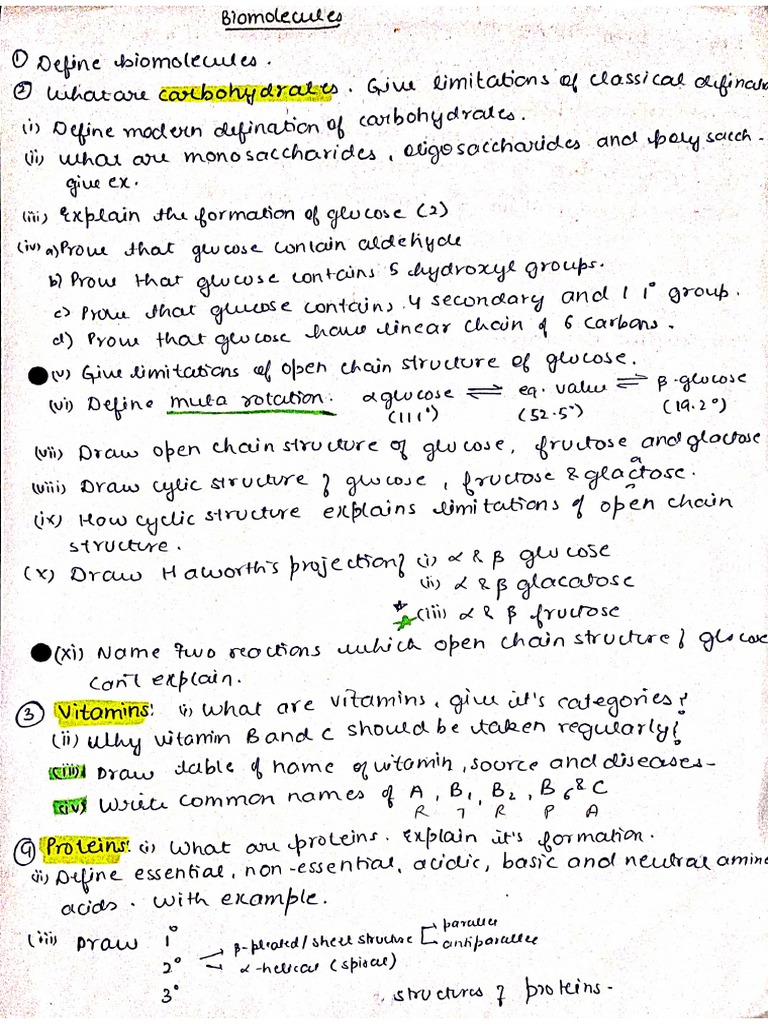 Biomolecules
① Define biomolecules.
② What are carbohydrates. Give limitations of classical defination
(i) Define modern defination of carbohydrates.
(ii) what are monosaccharides, oligosaccharides and polysacch-
give ex.
(iii) Explain the formation of glucose (2)
(iv) a) Prove that glucose contain aldehyde
b) Prove that glucose contains 5 hydroxyl groups.
c) Prove that glucose contains 4 secondary and 1 1° group.
d) Prove that glucose have linear chain of 6 carbons.
(v) Give limitations of open chain structure of glucose.
(vi) Define muta rotation: α glucose ⇌ eq. value ⇌ β-glucose
(111°) (52.5°) (19.2°)
(vii) Draw open chain structure of glucose, fructose and glactose
(viii) Draw cylic structure of glucose, fructose & glactose.
a
(ix) How cyclic structure explains limitations of open chain
structure.
(x) Draw Haworth's projection of (i) α & β glucose
(ii) α & β glacatose
(iii) α & β fructose
(xi) Name two reactions which open chain structure of glucose
can't explain.
③ Vitamins: i) What are vitamins, give it's categories?
(ii) Why vitamin B and C should be taken regularly?
(iii) Draw table of name of vitamin, source and diseases-
(iv) Write common names of A, B1, B2, B6 & C
R T R P A
④ Proteins: (i) What are proteins. Explain it's formation.
(ii) Define essential, non-essential, acidic, basic and neutral amino
acids. With example.
(iii) Draw 1°
2° β-pleated/sheet structure parallel
antiparallel
α-helical (spiral)
3° structures of proteins-